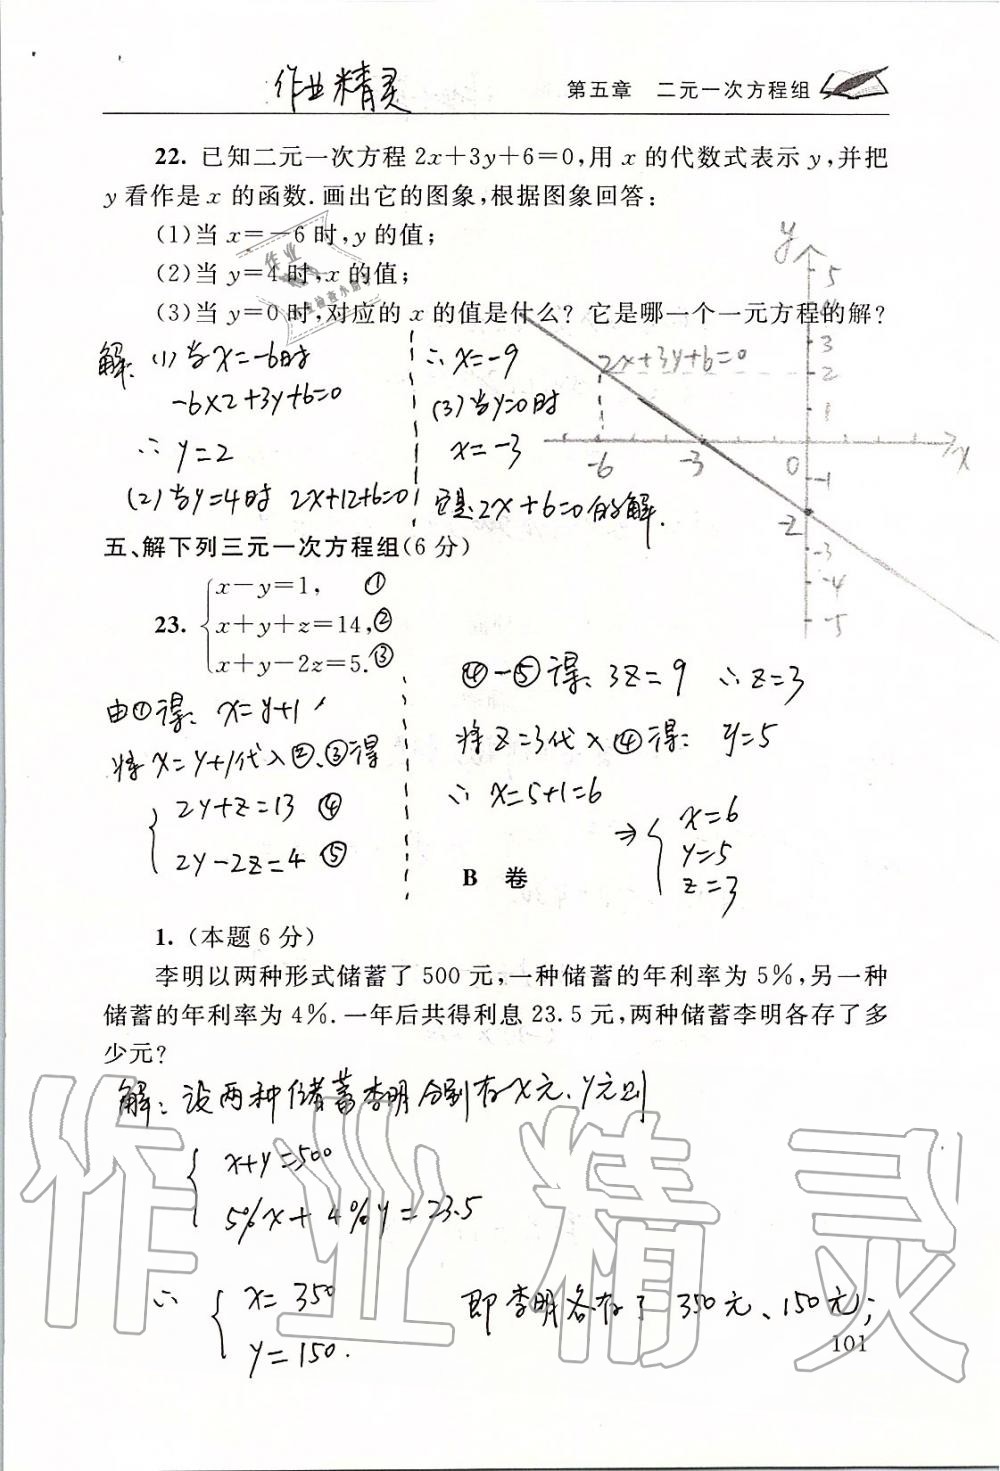 作业精灵
第五章 二元一次方程组
22. 已知二元一次方程2x+3y+6=0,用 x 的代数式表示 y,并把
y 看作是 x 的函数. 画出它的图象,根据图象回答:
(1)当 x=-6 时,y 的值;
(2)当 y=4 时,x 的值;
(3)当 y=0 时,对应的 x 的值是什么? 它是哪一个一元方程的解?
解: (1)当x=-6时
-6×2+3y+6=0
∴ y=2
(2)当y=4时 2x+12+6=0
∴ x=-9
(3)当y=0时
x=-3
它是2x+6=0的解.
y
5
4
3
2x+3y+6=0
2
1
-6
-3
0
x
-1
-2
-3
-4
-5
五、解下列三元一次方程组(6 分)
23.
x-y=1, ①
x+y+z=14,②
x+y-2z=5.③
由①得: x=y+1
将x=y+1代入②、③得
2y+z=13 ④
2y-2z=4 ⑤
④-⑤得: 3z=9 ∴z=3
将z=3代入④得: y=5
∴ x=5+1=6
⇒ x=6
y=5
z=3
B 卷
1. (本题 6 分)
李明以两种形式储蓄了 500 元,一种储蓄的年利率为 5%,另一种
储蓄的年利率为 4%. 一年后共得利息 23.5 元,两种储蓄李明各存了多
少元?
解: 设两种储蓄李明分别存x元、y元则
x+y=500
5%x+4%y=23.5
∴ x=350
y=150.
即李明各存了350元、150元;
101
作业精灵